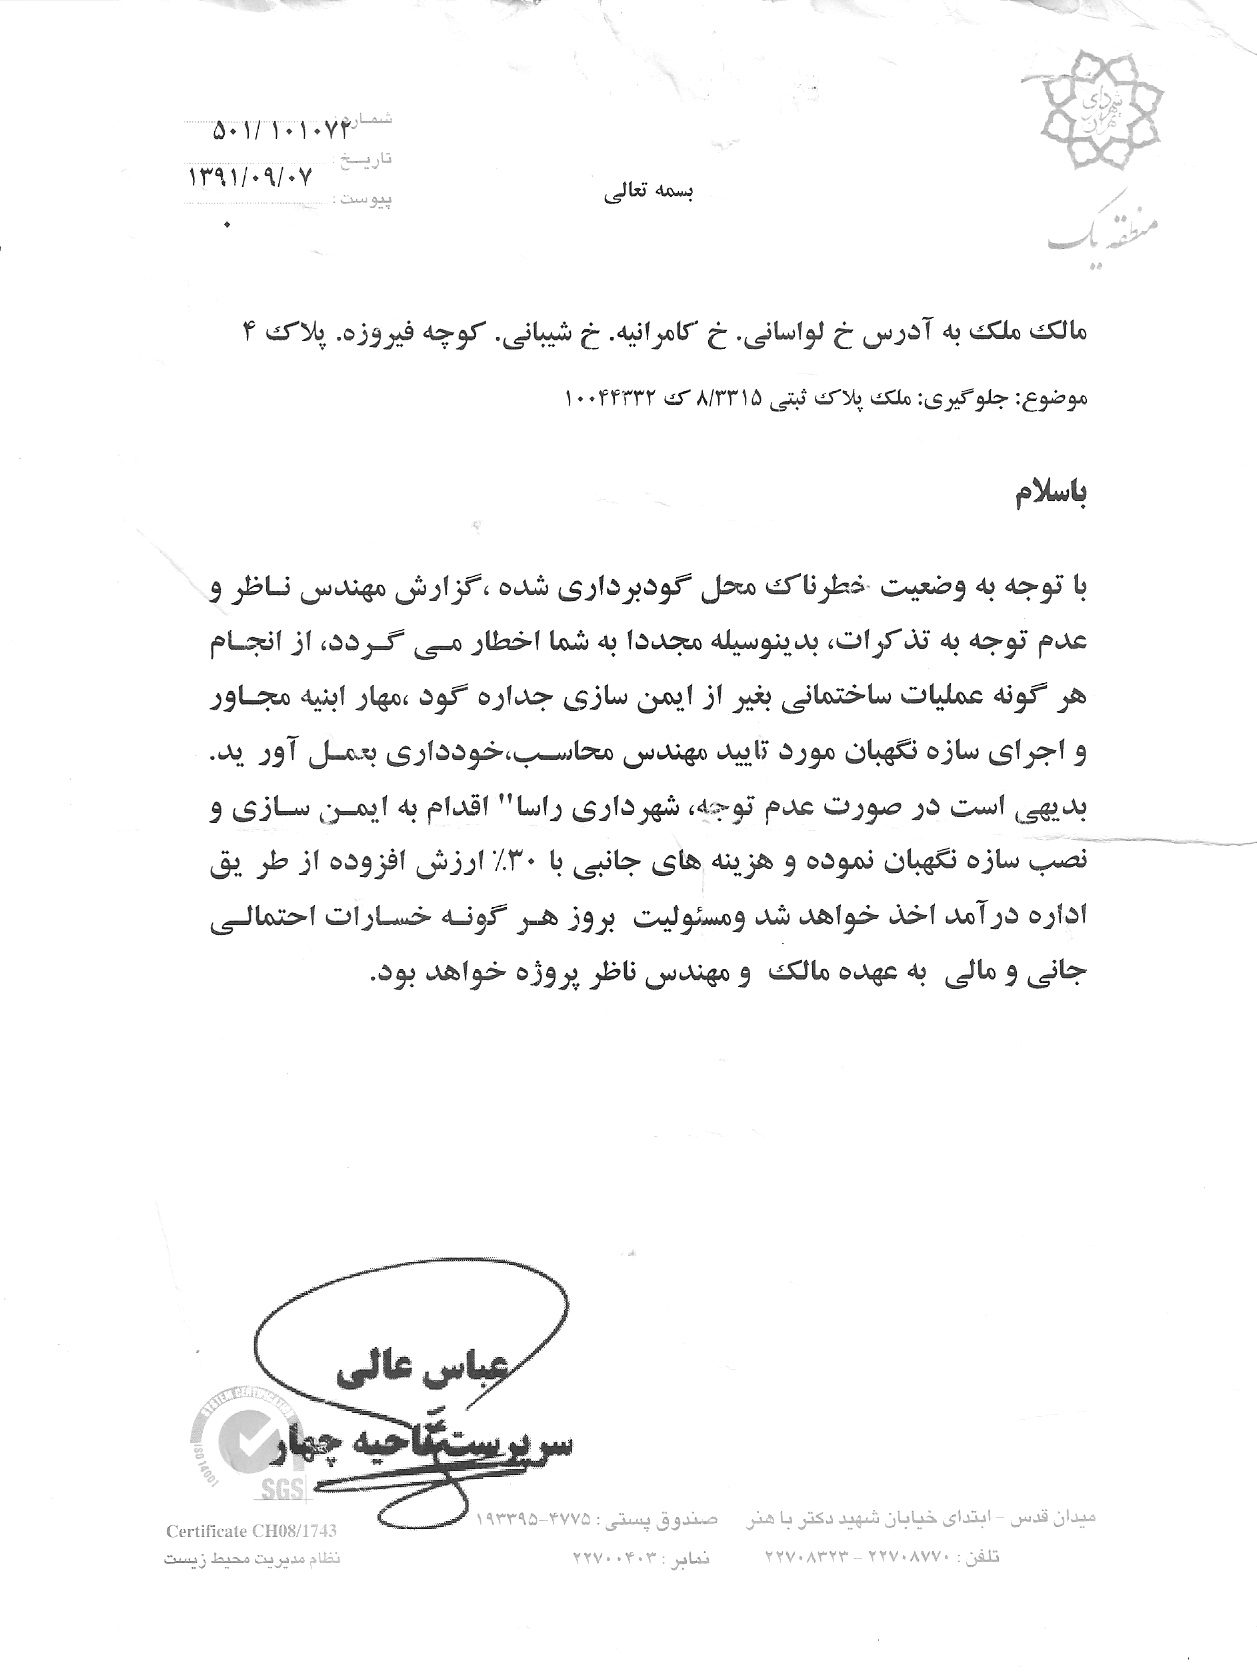 شهرداری تهران
منطقه یک
شماره : ۵۰۱/۱۰۱۰۷۲
تاریخ : ۱۳۹۱/۰۹/۰۷
پیوست : ۰
بسمه تعالی
مالک ملک به آدرس خ لواسانی. خ کامرانیه. خ شیبانی. کوچه فیروزه. پلاک ۴
موضوع: جلوگیری: ملک پلاک ثبتی ۸/۳۳۱۵ ک ۱۰۰۴۴۳۳۲
باسلام
با توجه به وضعیت خطرناک محل گودبرداری شده ،گزارش مهندس ناظر و
عدم توجه به تذکرات، بدینوسیله مجددا به شما اخطار می گردد، از انجام
هر گونه عملیات ساختمانی بغیر از ایمن سازی جداره گود ،مهار ابنیه مجاور
و اجرای سازه نگهبان مورد تایید مهندس محاسب،خودداری بعمل آور ید.
بدیهی است در صورت عدم توجه، شهرداری راسا" اقدام به ایمن سازی و
نصب سازه نگهبان نموده و هزینه های جانبی با ۳۰٪ ارزش افزوده از طر یق
اداره درآمد اخذ خواهد شد ومسئولیت بروز هر گونه خسارات احتمالی
جانی و مالی به عهده مالک و مهندس ناظر پروژه خواهد بود.
عباس عالی
سرپرست ناحیه چهار
SYSTEM CERTIFICATION
ISO 14001
SGS
Certificate CH08/1743
نظام مدیریت محیط زیست
میدان قدس - ابتدای خیابان شهید دکتر با هنر صندوق پستی : ۴۷۷۵-۱۹۳۳۹۵
تلفن : ۲۲۷۰۸۷۷۰ - ۲۲۷۰۸۳۲۳ نمابر : ۲۲۷۰۰۴۰۳